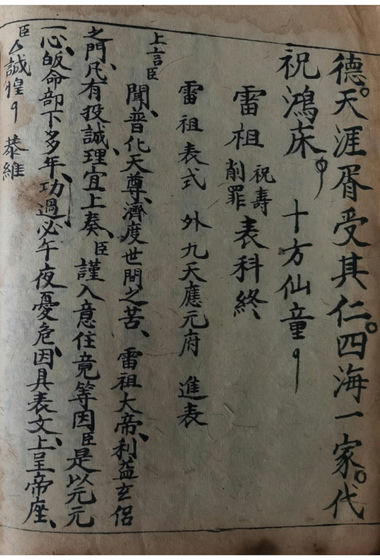 德。天涯胥受其仁。四海一家。代
祝鴻庥。 十方仙童
雷祖祝壽削罪表科終
雷祖表式 外九天應元府 進表
上言臣
聞、普化天尊、濟度世間之苦、雷祖大帝、利益玄侶
之門、凡有投誠、理宜上奏、臣謹入意住竟等因、臣是以元元
一心、皈命部下多年、功過必午夜憂危、因具表文、上呈帝座、
臣厶誠惶 恭維